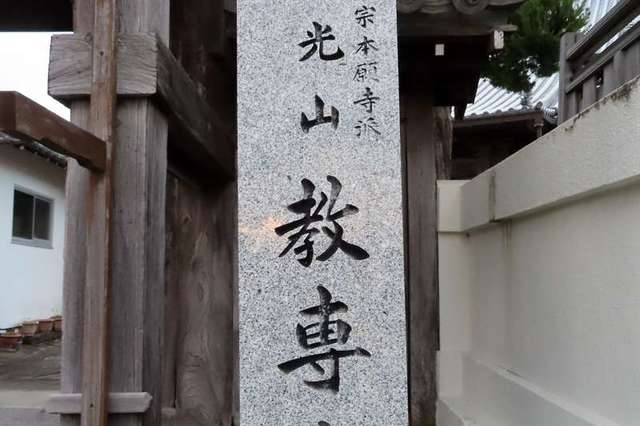 宗本願寺派
光山教専